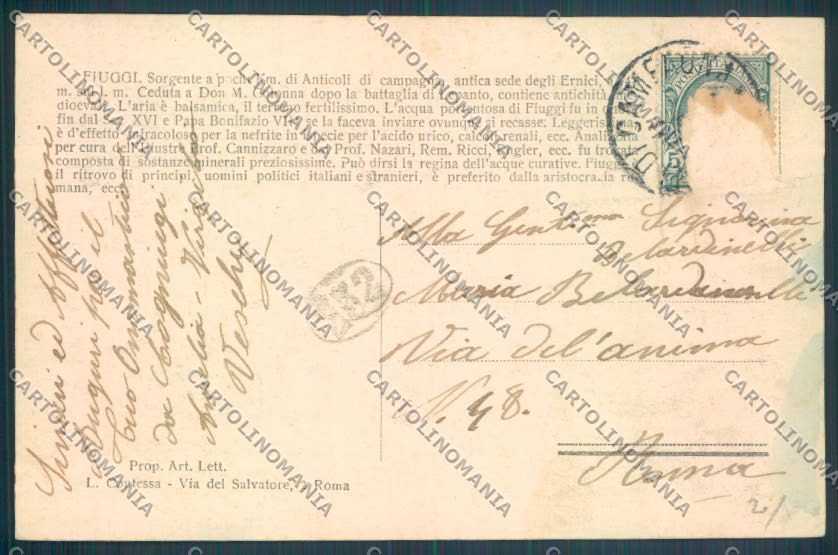 FIUGGI. Sorgente a poche km. di Anticoli di campagna, antica sede degli Ernici,
m. sul l. m. Ceduta a Don M. Colonna dopo la battaglia di Lepanto, contiene antichità
dioevali. L'aria è balsamica, il terreno fertilissimo. L'acqua portentosa di Fiuggi fu in
fin dal Sec. XVI e Papa Bonifazio VIII se la faceva inviare ovunque si recasse. Leggerissima
è d'effetto miracoloso per la nefrite in specie per l'acido urico, calcoli renali, ecc. Analizzata
per cura dell'illustre Prof. Cannizzaro e dai Prof. Nazari, Rem. Ricci, Engler, ecc. fu trovata
composta di sostanze minerali preziosissime. Può dirsi la regina dell'acque curative. Fiuggi
il ritrovo di principi, uomini politici italiani e stranieri, è preferito dalla aristocrazia ro-
mana, ecc.
POSTE ITALIANE
5
132
Sinceri ed Affettuosi
Auguri per il
tuo Onomastico
da
Amelia - Virginia
Veschi
Alla Gent.ma Signorina
Belardinelli
Maria Belardinelli
Via del'anima
N. 48.
Roma
Prop. Art. Lett.
L. Contessa - Via del Salvatore, Roma
2/
CARTOLINOMANIA